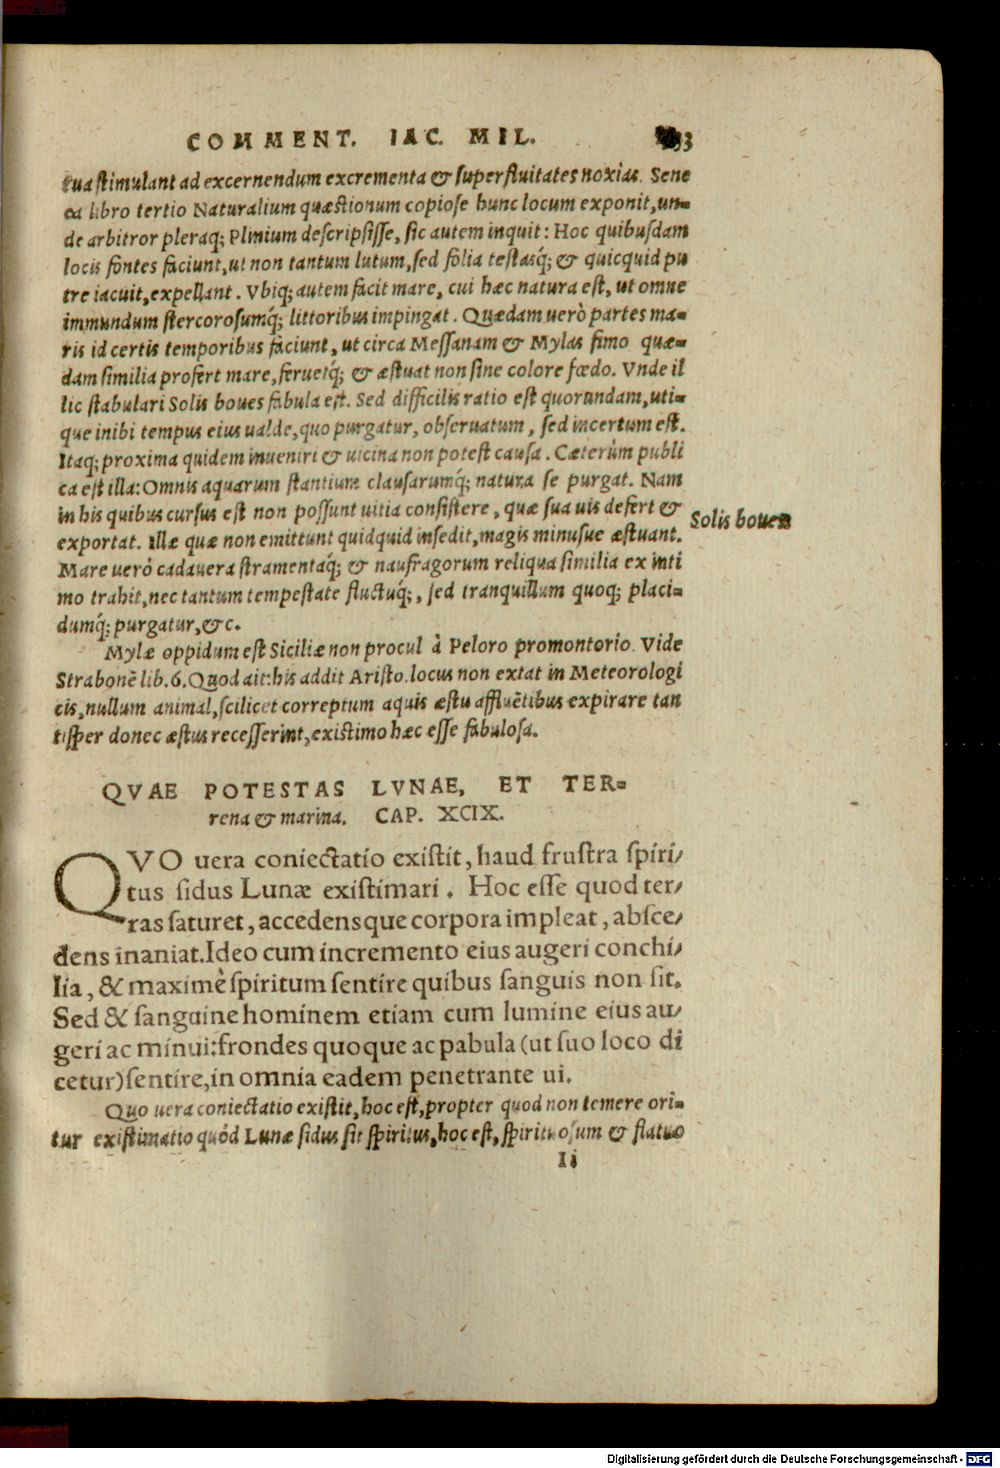 COMMENT. IAC. MIL. 33
tua stimulant ad excernendum excrementa & superfluitates noxias. Sene
ca libro tertio Naturalium quæstionum copiose hunc locum exponit, un-
de arbitror pleraq; Plinium descripsisse, sic autem inquit: Hoc quibusdam
locis fontes faciunt, ut non tantum lutum, sed folia testasq́; & quicquid pu
tre iacuit, expellant. Vbiq; autem facit mare, cui hæc natura est, ut omne
immundum stercorosumq́; littoribus impingat. Quædam uerò partes ma-
ris id certis temporibus faciunt, ut circa Messanam & Mylas fimo quæ-
dam similia profert mare, feruetq́; & æstuat non sine colore fœdo. Vnde il
lic stabulari Solis boues fabula est. Sed difficilis ratio est quorundam, uti-
que inibi tempus eius ualde, quo purgatur, obseruatum, sed incertum est.
Itaq; proxima quidem inueniri & uicina non potest causa. Cæterùm publi
ca est illa: Omnis aquarum stantium clausarumq́; natura se purgat. Nam
in his quibus cursus est non possunt uitia consistere, quæ sua uis defert &
Solis boues
exportat. Illæ quæ non emittunt quidquid insedit, magis minusue æstuant.
Mare uerò cadauera stramentaq́; & naufragorum reliqua similia ex inti
mo trahit, nec tantum tempestate fluctuq́;, sed tranquillum quoq; placi-
dumq́; purgatur, &c.
Mylæ oppidum est Siciliæ non procul à Peloro promontorio. Vide
Strabonē lib. 6. Quod ait: his addit Aristo. locus non extat in Meteorologi
cis, nullum animal, scilicet correptum aquis æstu affluētibus expirare tan
tisper donec æstus recesserint, existimo hæc esse fabulosa.
QVAE POTESTAS LVNAE, ET TER-
rena & marina. CAP. XCIX.
QVO uera coniectatio existit, haud frustra spiri-
tus sidus Lunæ existimari. Hoc esse quod ter-
ras saturet, accedensque corpora impleat, absce-
dens inaniat. Ideo cum incremento eius augeri conchi-
lia, & maximè spiritum sentire quibus sanguis non sit.
Sed & sanguine hominem etiam cum lumine eius au-
geri ac minui: frondes quoque ac pabula (ut suo loco di
cetur) sentire, in omnia eadem penetrante ui.
Quo uera coniectatio existit, hoc est, propter quod non temere ori-
tur existimatio quòd Lunæ sidus sit spiritus, hoc est, spirituosum & flatuo
Ii
Digitalisierung gefördert durch die Deutsche Forschungsgemeinschaft - DFG